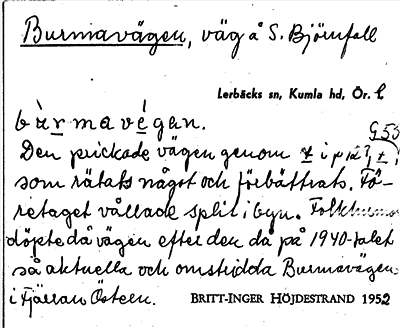 Burmavägen, väg å S. Björnfall
Lerbäcks sn, Kumla hd, Ör. l
bùrmavégan.
G55
Den prickade vägen genom
som rätats något och förbättrats. Fö-
retaget vållade split i byn. Folkhumor
döpte då vägen efter den då på 1940-talet
så aktuella och omstridda Burmavägen
i Fjärran Östern.
BRITT-INGER HÖJDESTRAND 1952